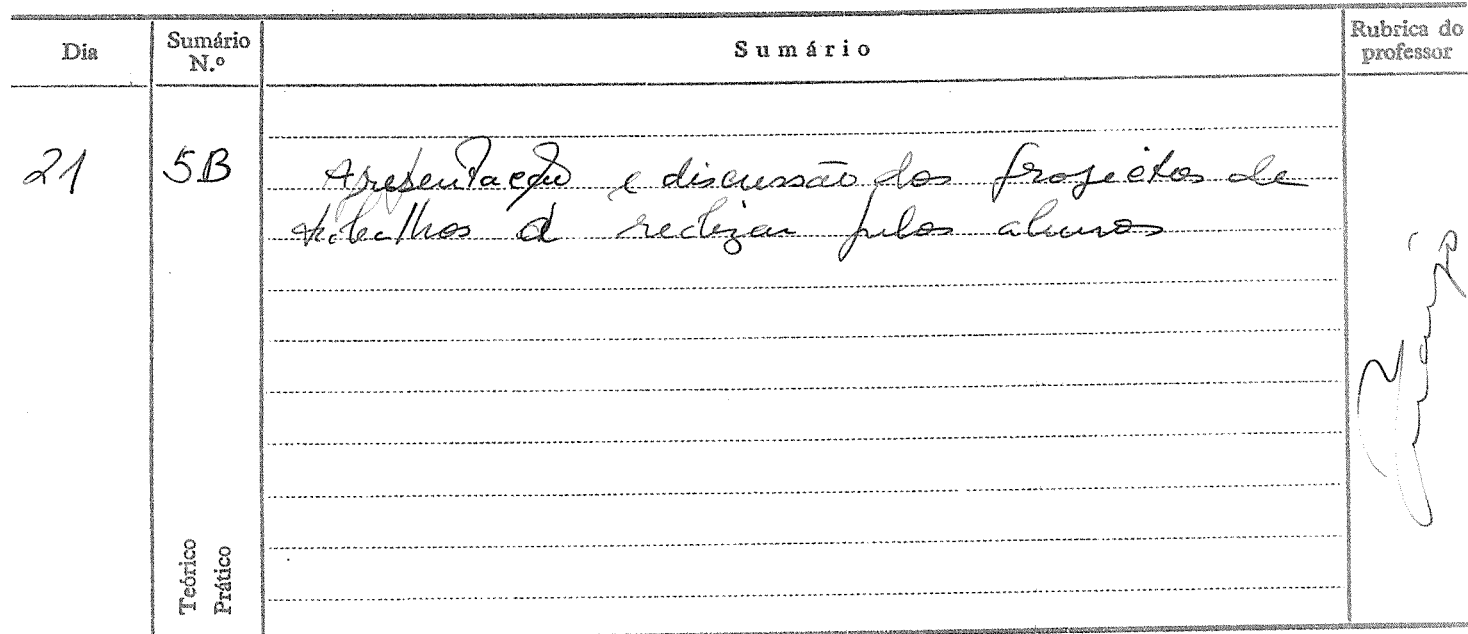 Dia
Sumário N.º
Sumário
Rubrica do professor
21
5B
Apresentação e discussão dos projectos de
trabalhos a realizar pelos alunos
Teórico
Prático